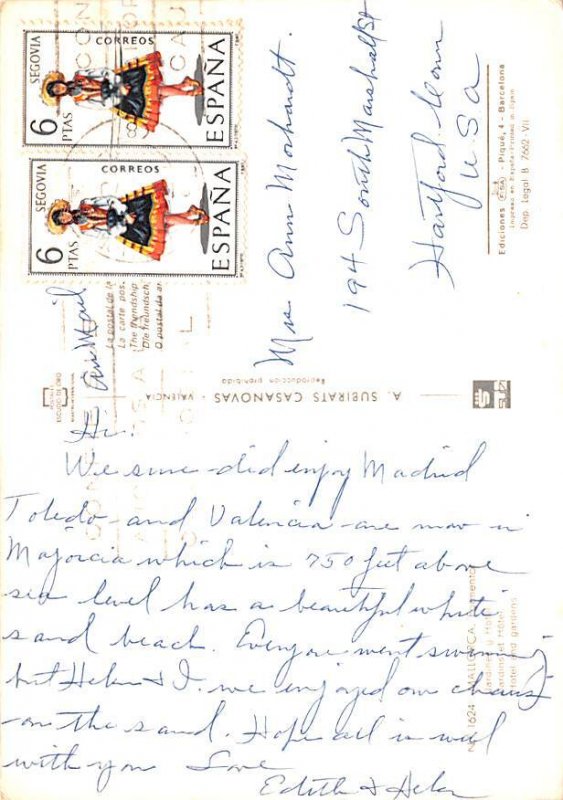 CORREOS
SEGOVIA
6
PTAS
ESPAÑA
CORREOS
SEGOVIA
6
PTAS
ESPAÑA
Air Mail
La postal de la
La carte pos
The friendship
Die freundsch
O postal da am
Mrs Ann Morhardt.
194 South Marshall St
Hartford Conn
USA
Ediciones · Piqué, 4 - Barcelona
Dep. Legal B 7662-VII
A. SUBIRATS CASANOVAS - VALENCIA
Reproducción prohibida
ESCUDO DE ORO
Hi.
We sure did enjoy Madrid
Toledo and Valencia are now in
Majorcia which is 750 feet above
sea level has a beautiful white
sand beach. Everyone went swimming
but Helen & I. we enjoyed our chairs
on the sand. Hope all is well
with you Love
Edith & Helen
1624 MALLORCA
Hotel and gardens